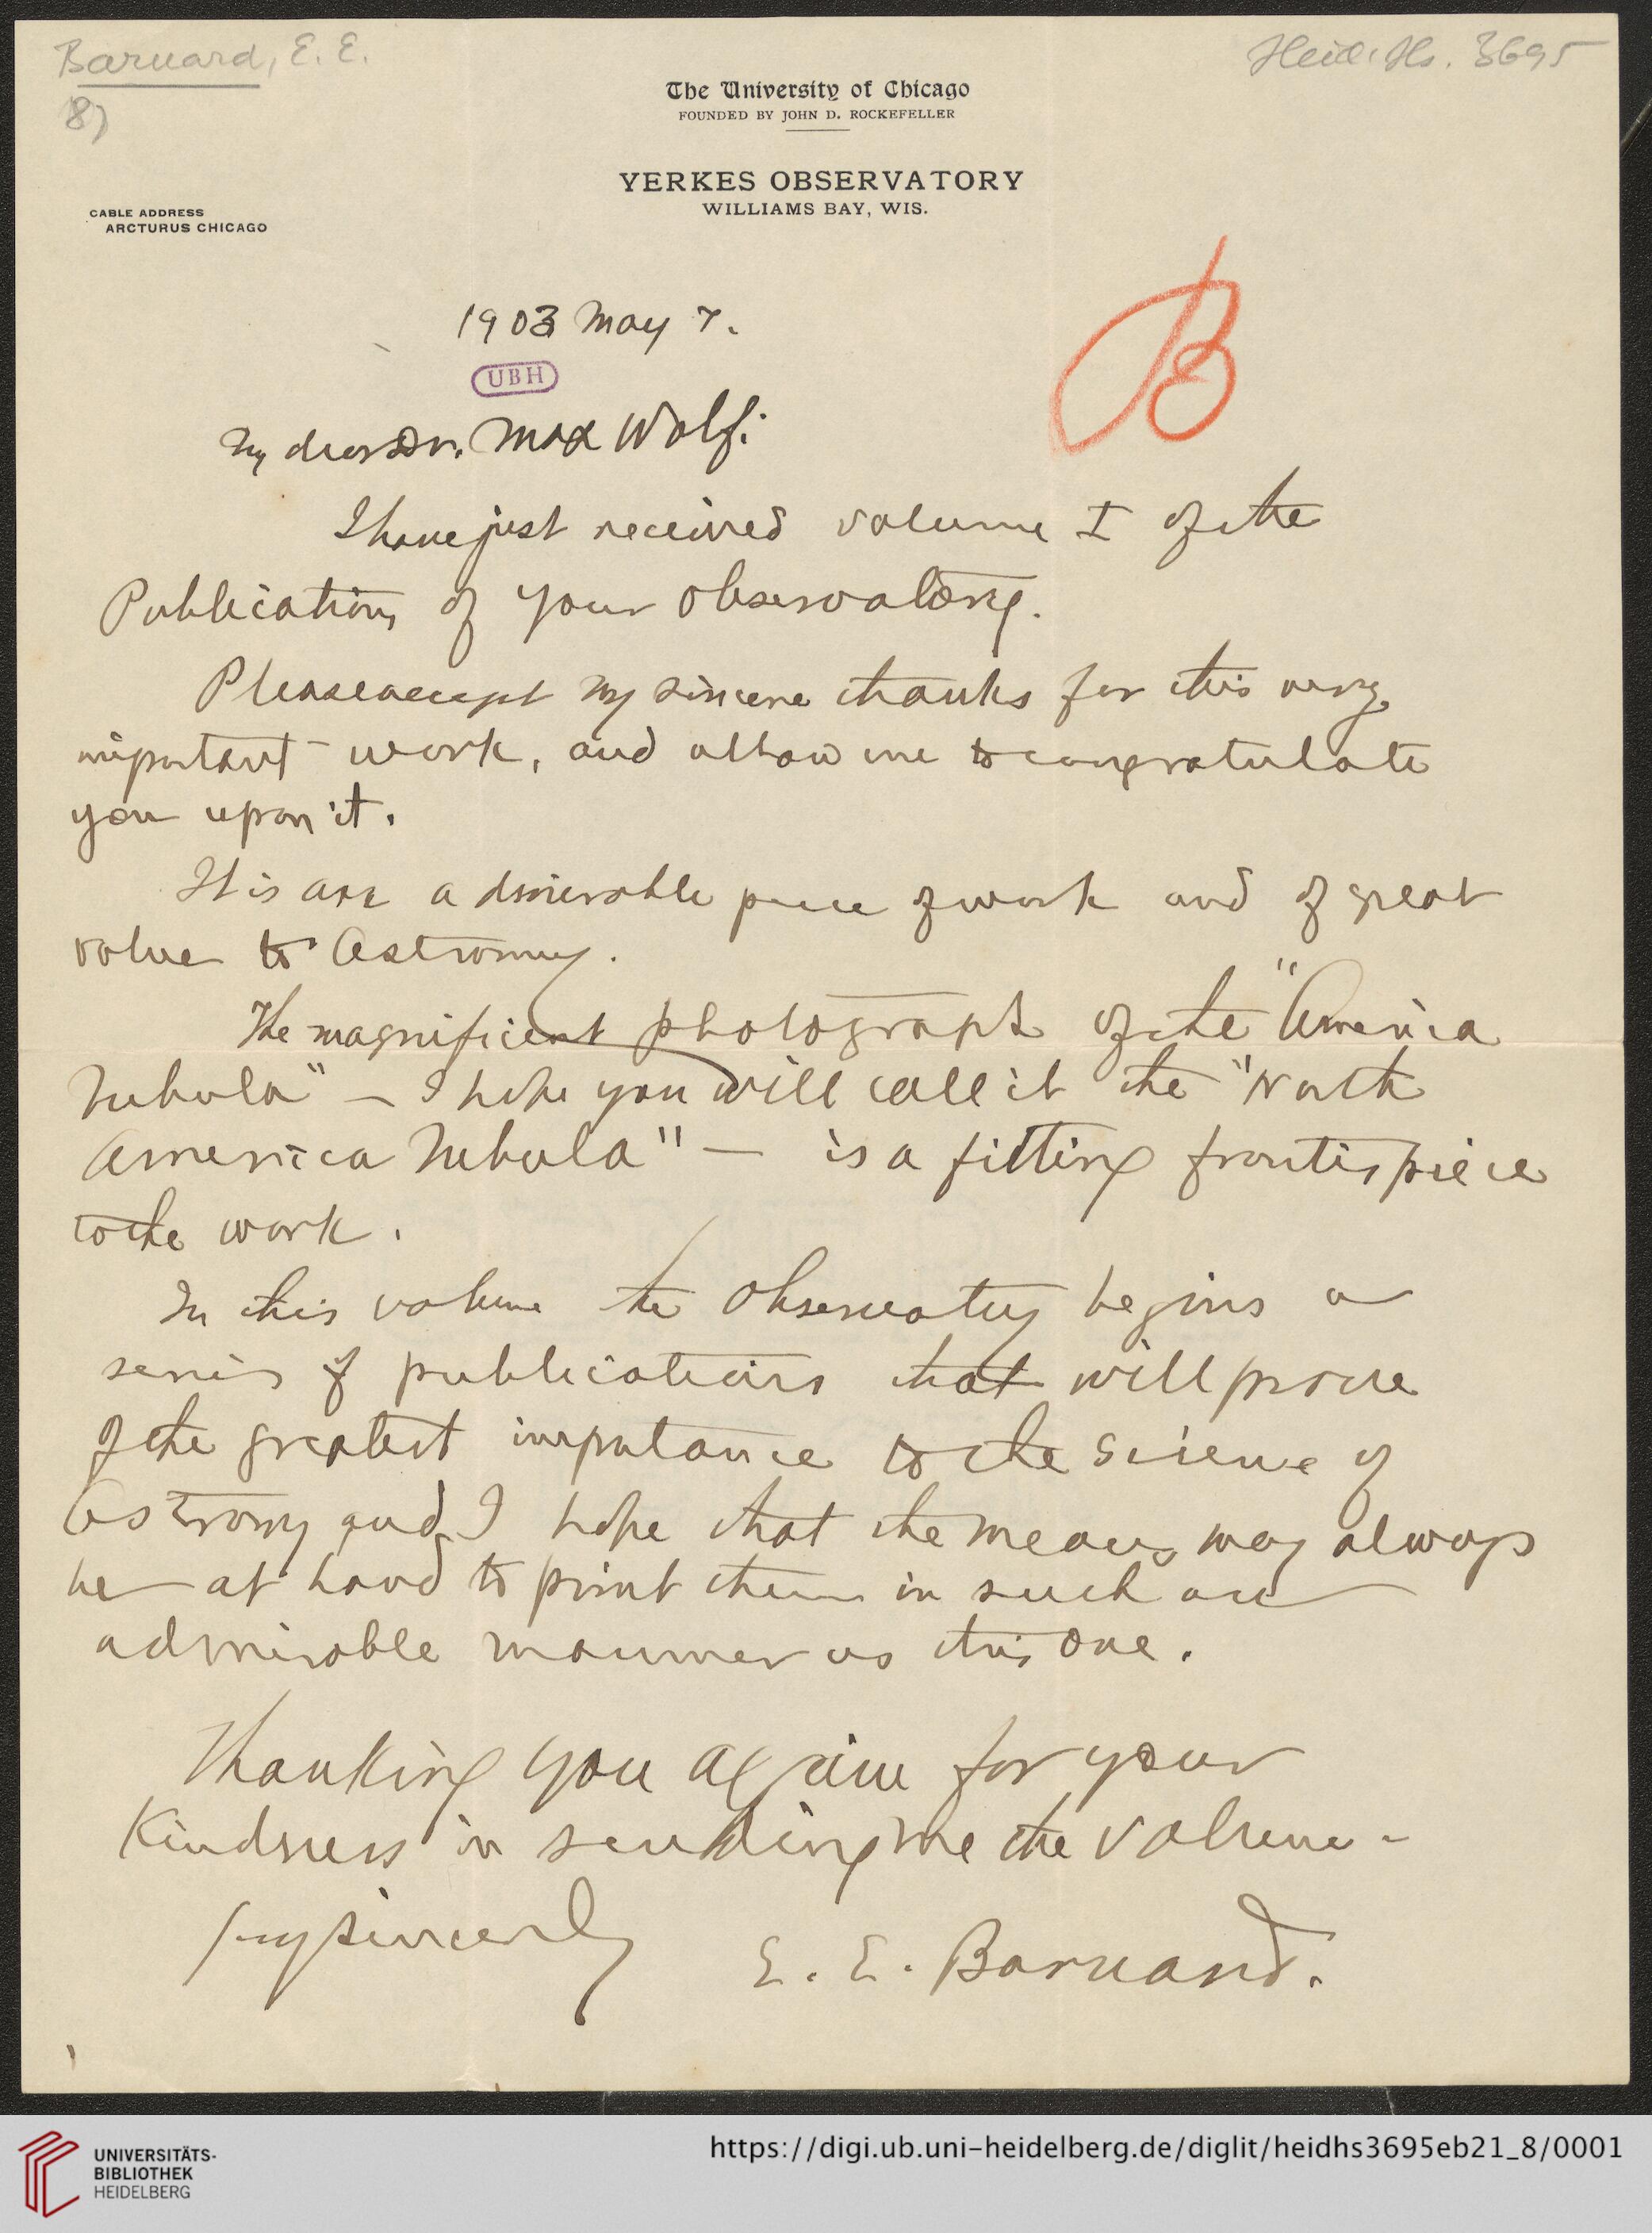 Barnard, E. E.
8)
Heid. Hs. 3695
The University of Chicago
FOUNDED BY JOHN D. ROCKEFELLER
YERKES OBSERVATORY
WILLIAMS BAY, WIS.
CABLE ADDRESS
ARCTURUS CHICAGO
1903 May 7.
UBH
B
My dear Dr. Max Wolf:
I have just received volume I of the
Publications of your Observatory.
Please accept my sincere thanks for this very
important work, and allow me to congratulate
you upon it.
It is an admirable piece of work and of great
value to Astronomy.
The magnificent photograph of the "America
Nebula" — I hope you will call it the "North
America Nebula" — is a fitting frontispiece
to the work.
In this volume the Observatory begins a
series of publications that will prove
of the greatest importance to the science of
Astronomy and I hope that the means may always
be at hand to print them in such an
admirable manner as this one.
Thanking you again for your
Kindness in sending me the volume-
sincerely
E. E. Barnard.
UNIVERSITÄTS-
BIBLIOTHEK
HEIDELBERG
https://digi.ub.uni-heidelberg.de/diglit/heidhs3695eb21_8/0001